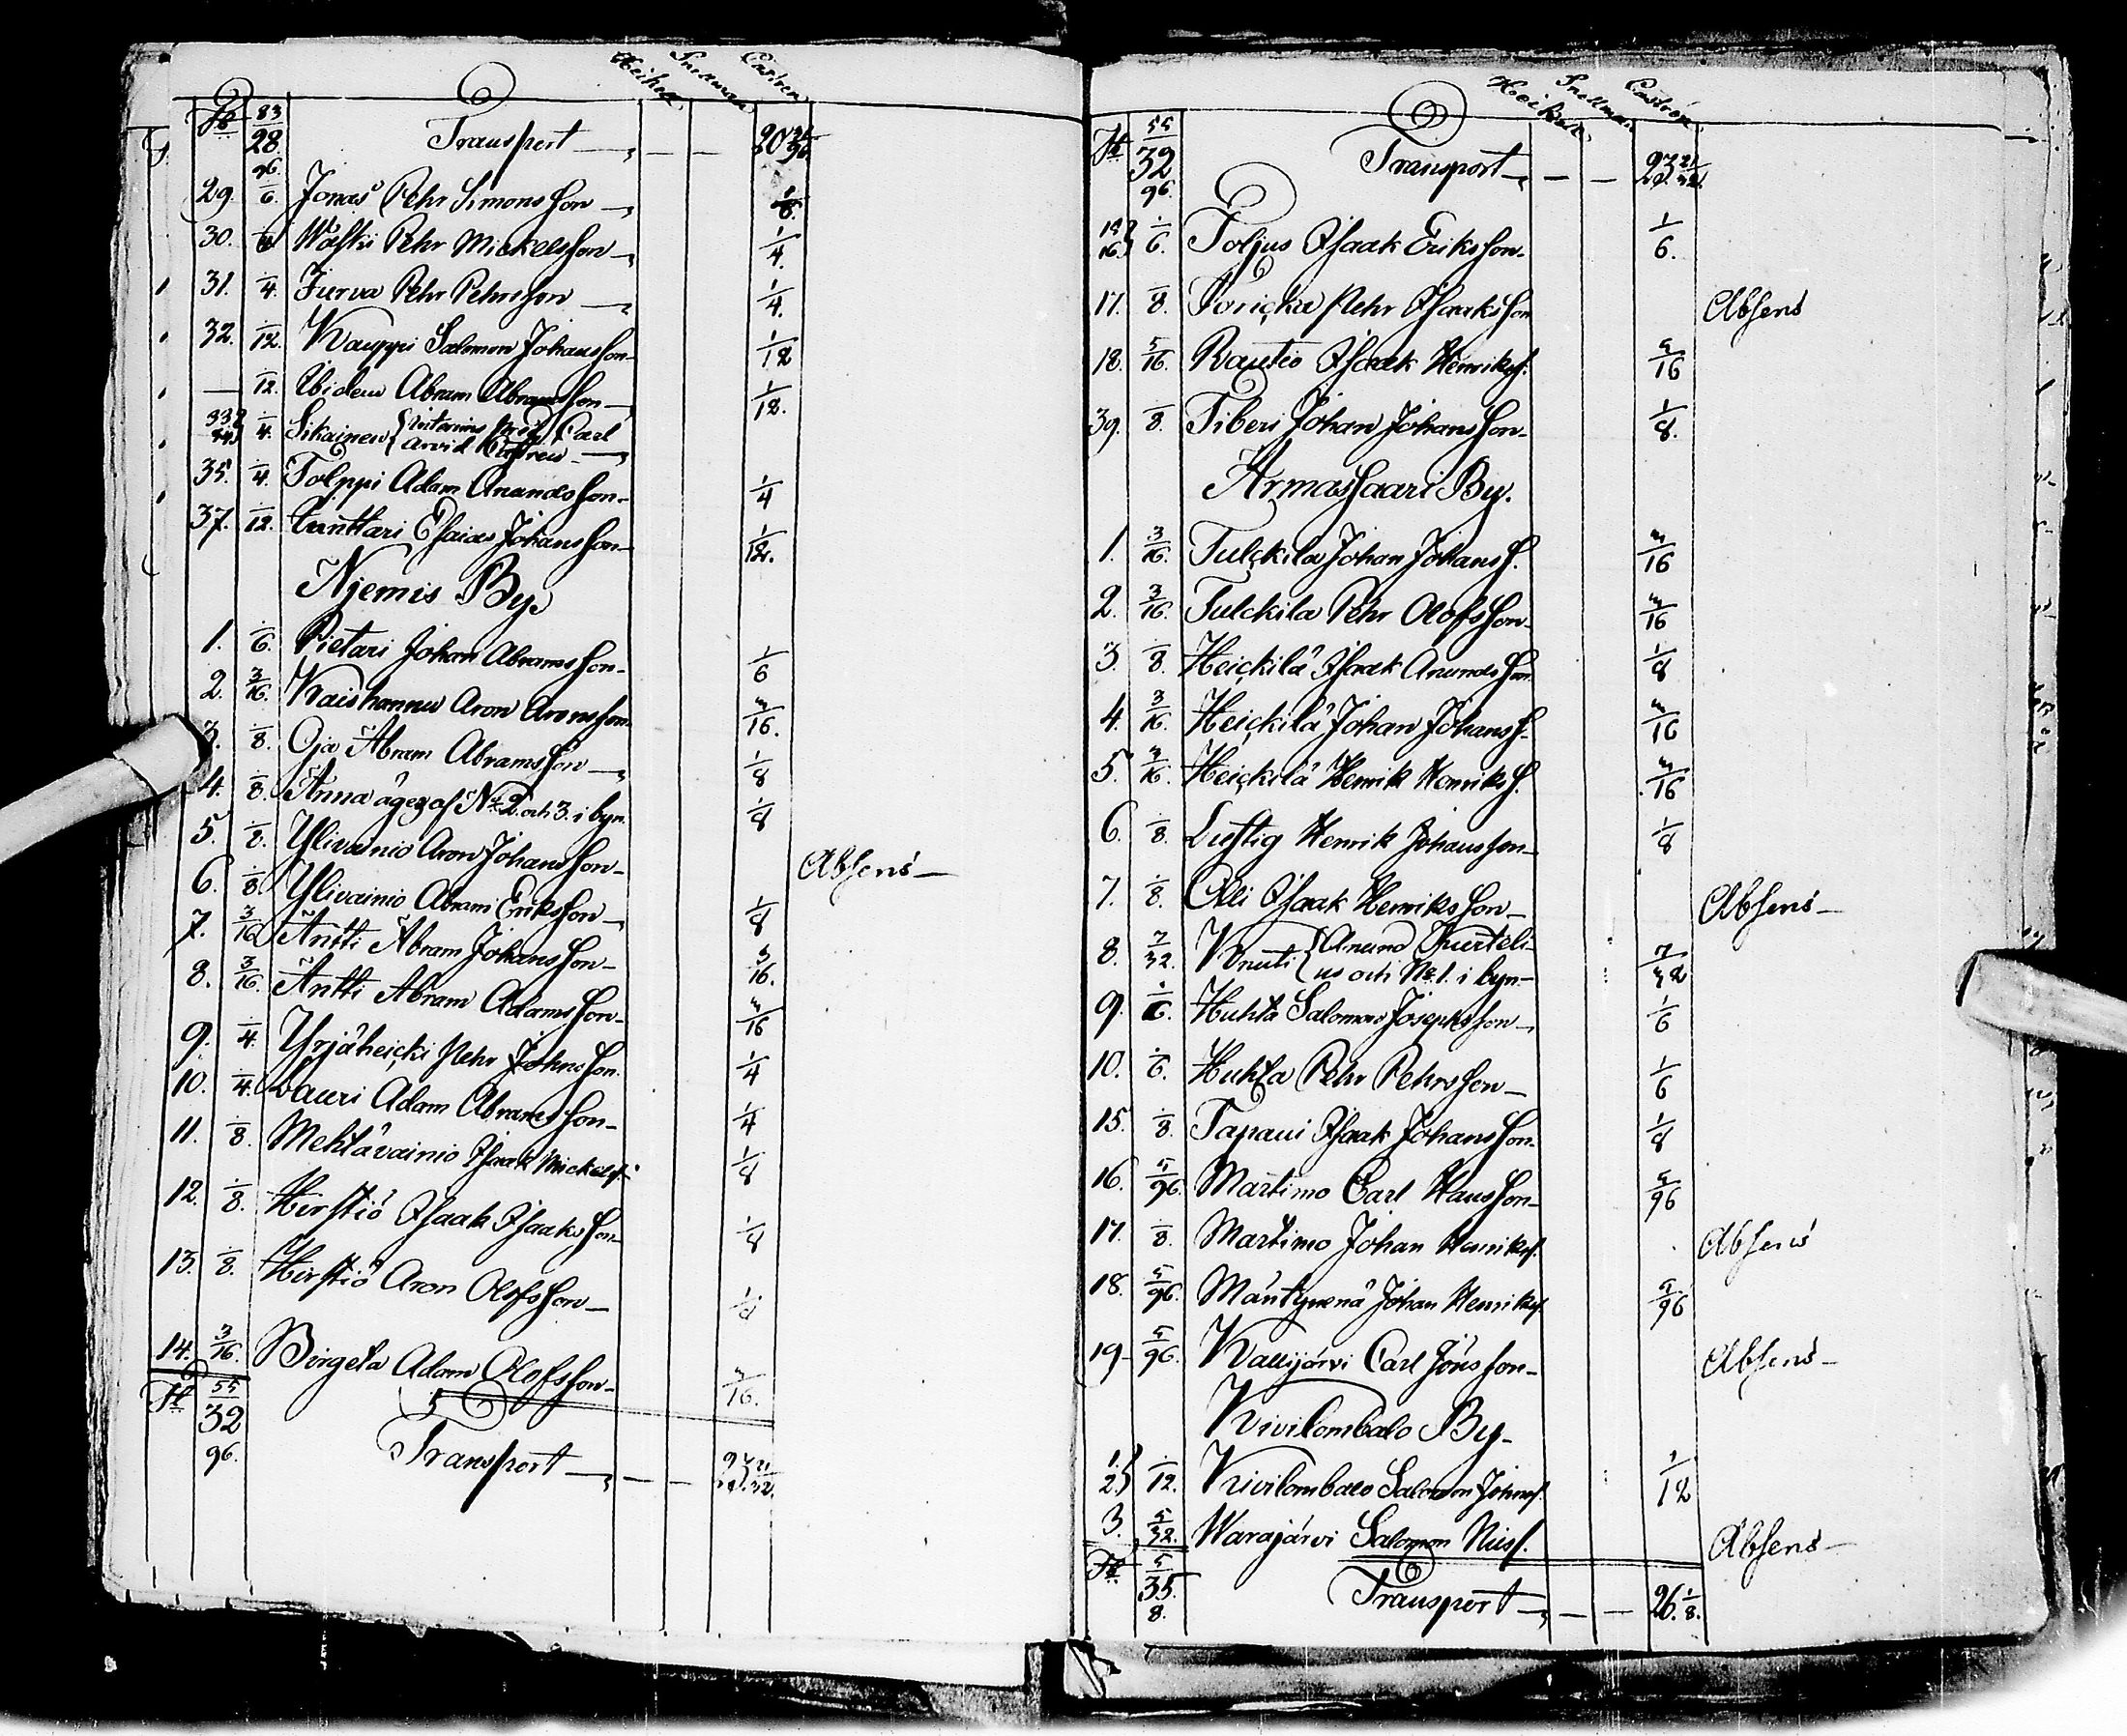 Snellman Castren
28 83/96 Transport — — — 20
29. 1/6. Jonas Pehr Simonsson — 1/6.
30. Wäski Pehr Mickelsson — 1/4.
31. 1/4. Jurva Pehr Pehrsson — 1/4.
32. 1/12. Kauppi Salomon Johansson — 1/12
— 1/12. Ibidem Abram Abramsson — 1/12.
33. 34. 1/4. Sikainen Carl
Arvid Castren —
35. 1/4. Tolppi Adam Anundsson — 1/4
37. 1/12. Esaias Johansson — 1/12.
Njemis By.
1. 1/6. Pietari Johan Abramsson — 1/6
2. 3/16. Kaishannu Aron Aronsson 3/16.
3. 1/8. Oja Abram Abramsson — 1/8
4. 1/8. Anna äges af No 2 och 3. i byn. 1/8
5. 1/8. Ylivainio Aron Johansson — Absens —
6. 1/8. Ylivainio Abram Eriksson — 1/8
7. 3/16 Antti Abram Johansson — 3/16.
8. 3/16. Antti Abram Adamsson — 3/16
9. 1/4. Yrjäheicki Pehr Johansson. 1/4
10. 1/4. Lauri Adam Abramsson — 1/4
11. 1/8. Mehtävainio Isaak Mickelss. 1/8
12. 1/8. Hirstiö Isaak Isaaksson — 1/8
13. 1/8. Hirstiö Aron Olofsson — 1/8
14. 3/16. Birgeta Adam Olofsson — 3/16.
32 55/96. Transport — — — 23 21/32.
Snellman Castrén
32 55/96. Transport — — — 23 21/32.
15. 16. 1/6. Toljus Isaak Eriksson. 1/6.
17. 1/8. Pehr Isaaksson Absens
18. 5/16. Rautio Isaak Henrikss. 5/16
39. 1/8. Tiberi Johan Johansson — 1/8.
Armassaari By.
1. 3/16. Tulckila Johan Johanss. 3/16
2. 3/16. Tulckila Pehr Olofsson — 3/16
3. 1/8. Heickilä Isaak Anundsson 1/8
4. 3/16. Heickilä Johan Johanss. 3/16
5. 3/16. Heickilä Henrik Henrikss. 3/16
6. 1/8. Lustig Henrik Johansson — 1/8
7. 1/8. Olli Isaak Henriksson — Absens —
8. 7/32. Knuti Anund Kurteli-
us och No 1. i byn — 7/32
9. 1/6. Huhta Salomon Josephsson — 1/6
10. 1/6. Huhta Pehr Pehrsson — 1/6
15. 1/8. Tapani Isaak Johansson. 1/8
16. 5/96. Martimo Carl Hansson — 5/96
17. 1/8. Martimo Johan Henrikss. Absens
18. 5/96. Mäntymenä Johan Henrikss. 5/96
19 — 5/96. Kallijärvi Carl Jönsson — Absens —
Kivilombalo By —
1. 2. 1/12. Kivilombalo Salomon Johanss. 1/12
3. 5/32. Warajärvi Salomon Nilss. Absens —
35. 5/8. Transport — — — 26. 1/8.